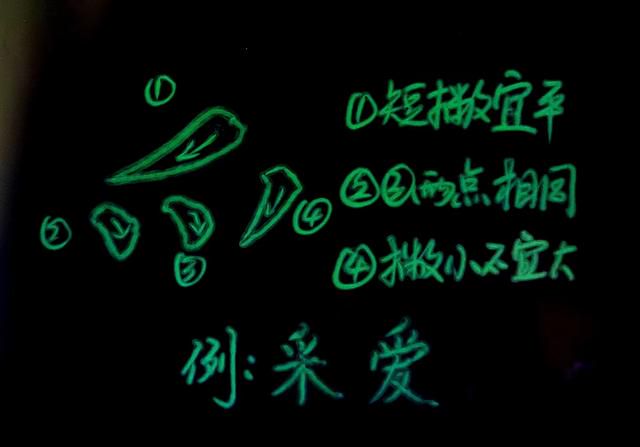 ①
②
③
④
①短撇宜平
②③两点相同
④撇小不宜大
例:采爱